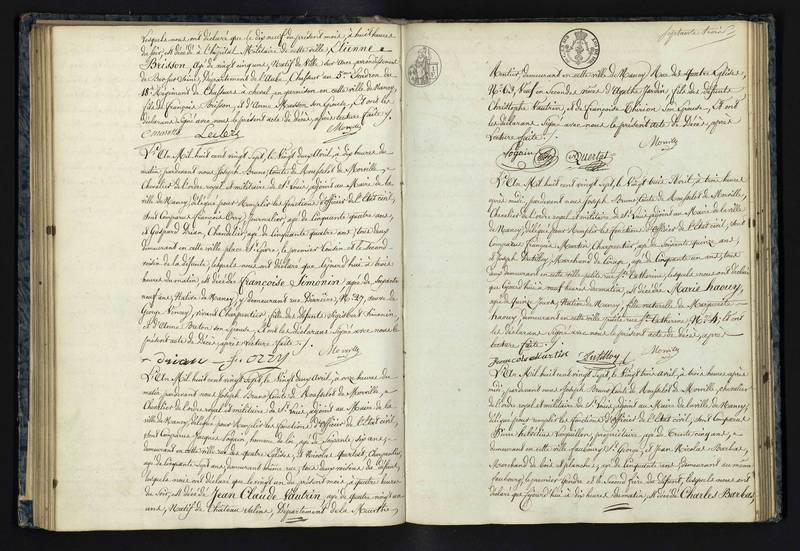 Lesquels nous ont déclaré que le dix neuf du présent mois, à huit heures
du soir, est décédé à l'hôpital Militaire de cette ville, Etienne
Brisson, âgé de vingt cinq ans, Natif de Ville sur Arce, arrondissement
de Bar sur Seine, Département de l'Aube, Chasseur au 5me Escadron du
18e Régiment de Chasseurs à cheval, en garnison en cette ville de Nancy,
fils de François Brisson, et d'Anne Masson son épouse, Et ont les
déclarans Signé avec nous le présent acte de décès, après lecture faite.
Morville
L'An Mil huit cent vingt Sept, le Vingt deux Avril, à dix heures du
matin, pardevant nous Joseph Bruno Comte de Rousselot de Morville,
Chevalier de l'ordre royal et militaire de St Louis, adjoint au Maire de la
ville de Nancy, délégué pour Remplir les fonctions d'officier de l'Etat civil,
sont Comparus François Orry, Journalier, âgé de Cinquante quatre ans,
et Gaspard Drian, Chandelier, âgé de Cinquante quatre ans, tous deux
demeurant en cette ville, place St Epvre, le premier Cousin et le Second
voisin de la défunte, lesquels nous ont déclaré que Cejourd'hui à trois
heures du matin, est décédée Françoise Simonin, âgée de Soixante
neuf ans, Native de Nancy, y demeurant rue Derrière, No 27, veuve de
George Fenay, vivant Charpentier, fille des défunts Sigisbert Simonin,
et Anne Breton son épouse, Et ont les déclarans Signé avec nous le
présent acte de Décès, après Lecture faite.
Drian f. orry Morville
L'An Mil huit cent vingt Sept, le Vingt deux Avril, à onze heures du
matin, pardevant nous Joseph Bruno Comte de Rousselot de Morville,
Chevalier de l'ordre royal et militaire de St Louis, adjoint au Maire de la
ville de Nancy, délégué pour Remplir les fonctions d'officier de l'Etat civil,
sont Comparus Jacques Logain, homme de loi, âgé de Soixante Six ans,
demeurant en cette ville rue des quatre Eglises, et Nicolas Quertat, Charpentier,
âgé de Cinquante Sept ans, demeurant même rue, tous deux voisins du défunt,
lesquels nous ont déclaré que le vingt un du présent mois à quatre heures
du soir, est décédé Jean Claude Vautrin, âgé de quatre vingt un
ans, Natif de Château Salins, Département de la Meurthe,
Septante trois
Rentier, demeurant en cette ville de Nancy, Rue des Quatre Eglises,
No 63, Veuf en Secondes noces d'Agathe Jardin, fils des défunts
Christophe Vautrin, et de Françoise Thirion son Epouse, Et ont
les déclarans Signé avec nous le présent acte de Décès, après
Lecture faite.
Logain Quertat Morville
L'An Mil huit cent vingt Sept, le Vingt trois Avril, à trois heures
après midi, pardevant nous Joseph Bruno Comte de Rousselot de Morville,
Chevalier de l'ordre royal et militaire de St Louis, adjoint au Maire de la ville
de Nancy, délégué pour Remplir les fonctions d'officier de l'Etat civil, sont
Comparus François Martin Charpentier, âgé de Soixante quinze ans,
et Joseph Marchand de Linge, âgé de Cinquante un ans, tous
deux demeurant en cette ville petite rue Ste Catherine, lesquels nous ont déclaré
que Cejourd'hui à neuf heures du matin, est décédée Marie haouy,
âgée de quinze Jours, Native de Nancy, fille naturelle de Marguerite
haouy, demeurant en cette ville petite rue Ste Catherine, No 4, Et ont
les déclarans Signé avec nous le présent acte de décès, après
Lecture faite.
François Martin Morville
L'An Mil huit cent vingt Sept, le Vingt trois Avril, à trois heures après
midi, pardevant nous Joseph Bruno Comte de Rousselot de Morville, chevalier
de l'ordre royal et militaire de St Louis, adjoint au Maire de la ville de Nancy,
délégué pour remplir les fonctions d'officier de l'Etat civil, sont Comparus
Pierre propriétaire, âgé de Trente cinq ans,
demeurant en cette ville faubourg St George, et Jean Nicolas Barbas,
Marchand de bois à planches, âgé de Cinquante ans, demeurant au même
faubourg, le premier gendre et le Second frère du Défunt, lesquels nous ont
déclaré que Cejourd'hui à dix heures du matin, est décédé Charles Barbas,